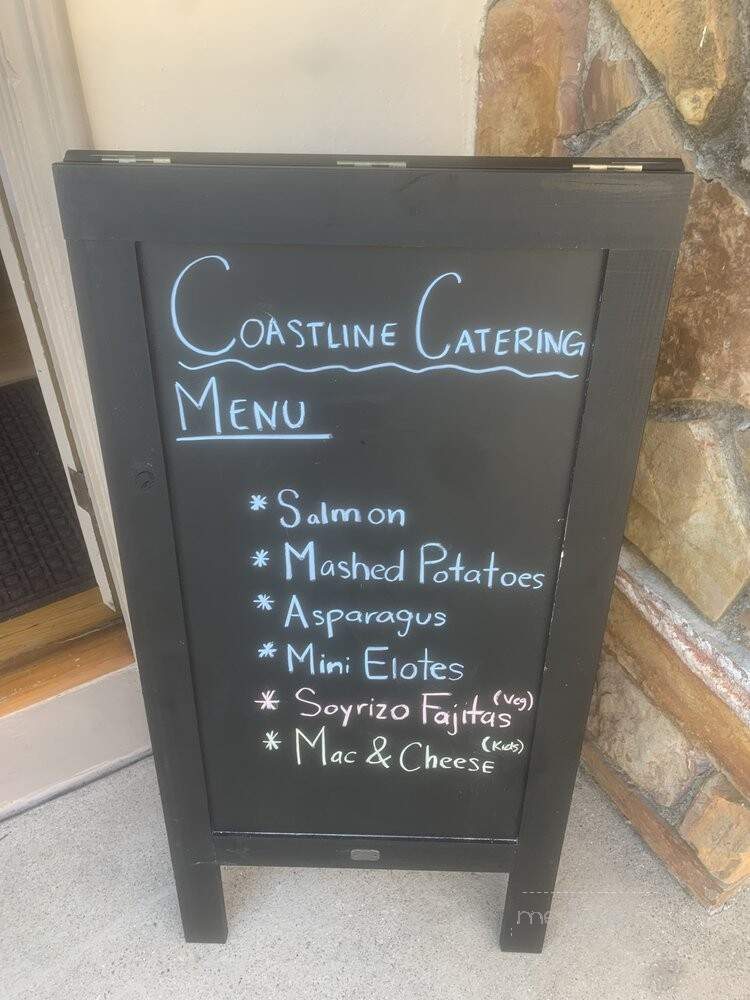 COASTLINE CATERING
MENU
* Salmon
* Mashed Potatoes
* Asparagus
* Mini Elotes
* Soyrizo Fajitas (Veg)
* Mac & Cheese (Kids)